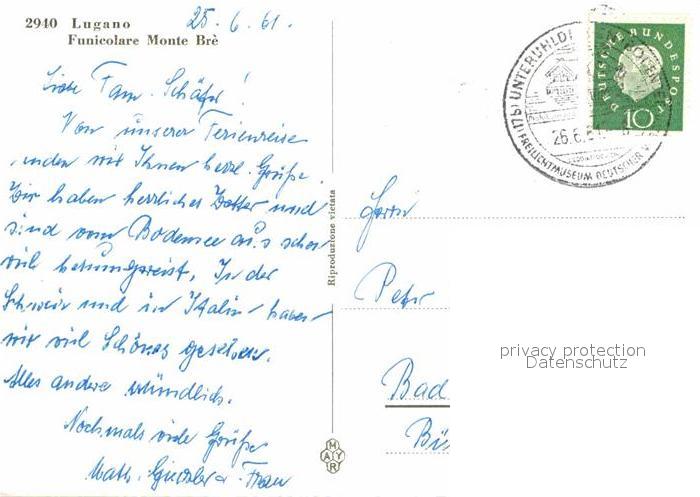 2940 Lugano
Funicolare Monte Brè
25.6.61.
Liebe Fam. Schäfer!
Von unserer Ferienreise
senden wir Ihnen herzl. Grüße.
Wir haben herrliches Wetter und
sind vom Bodensee aus schon
viel herumgereist. In der
Schweiz und in Italien haben
wir viel Schönes gesehen.
Alles andere mündlich.
Nochmals viele Grüße
Math. & Frau
Riproduzione vietata
MAYR
Peter
Bad
DEUTSCHE BUNDESPOST
10
(17b) UNTERUHLDI
26.6.61
FREILICHTMUSEUM DEUTSCHER V
privacy protection
Datenschutz